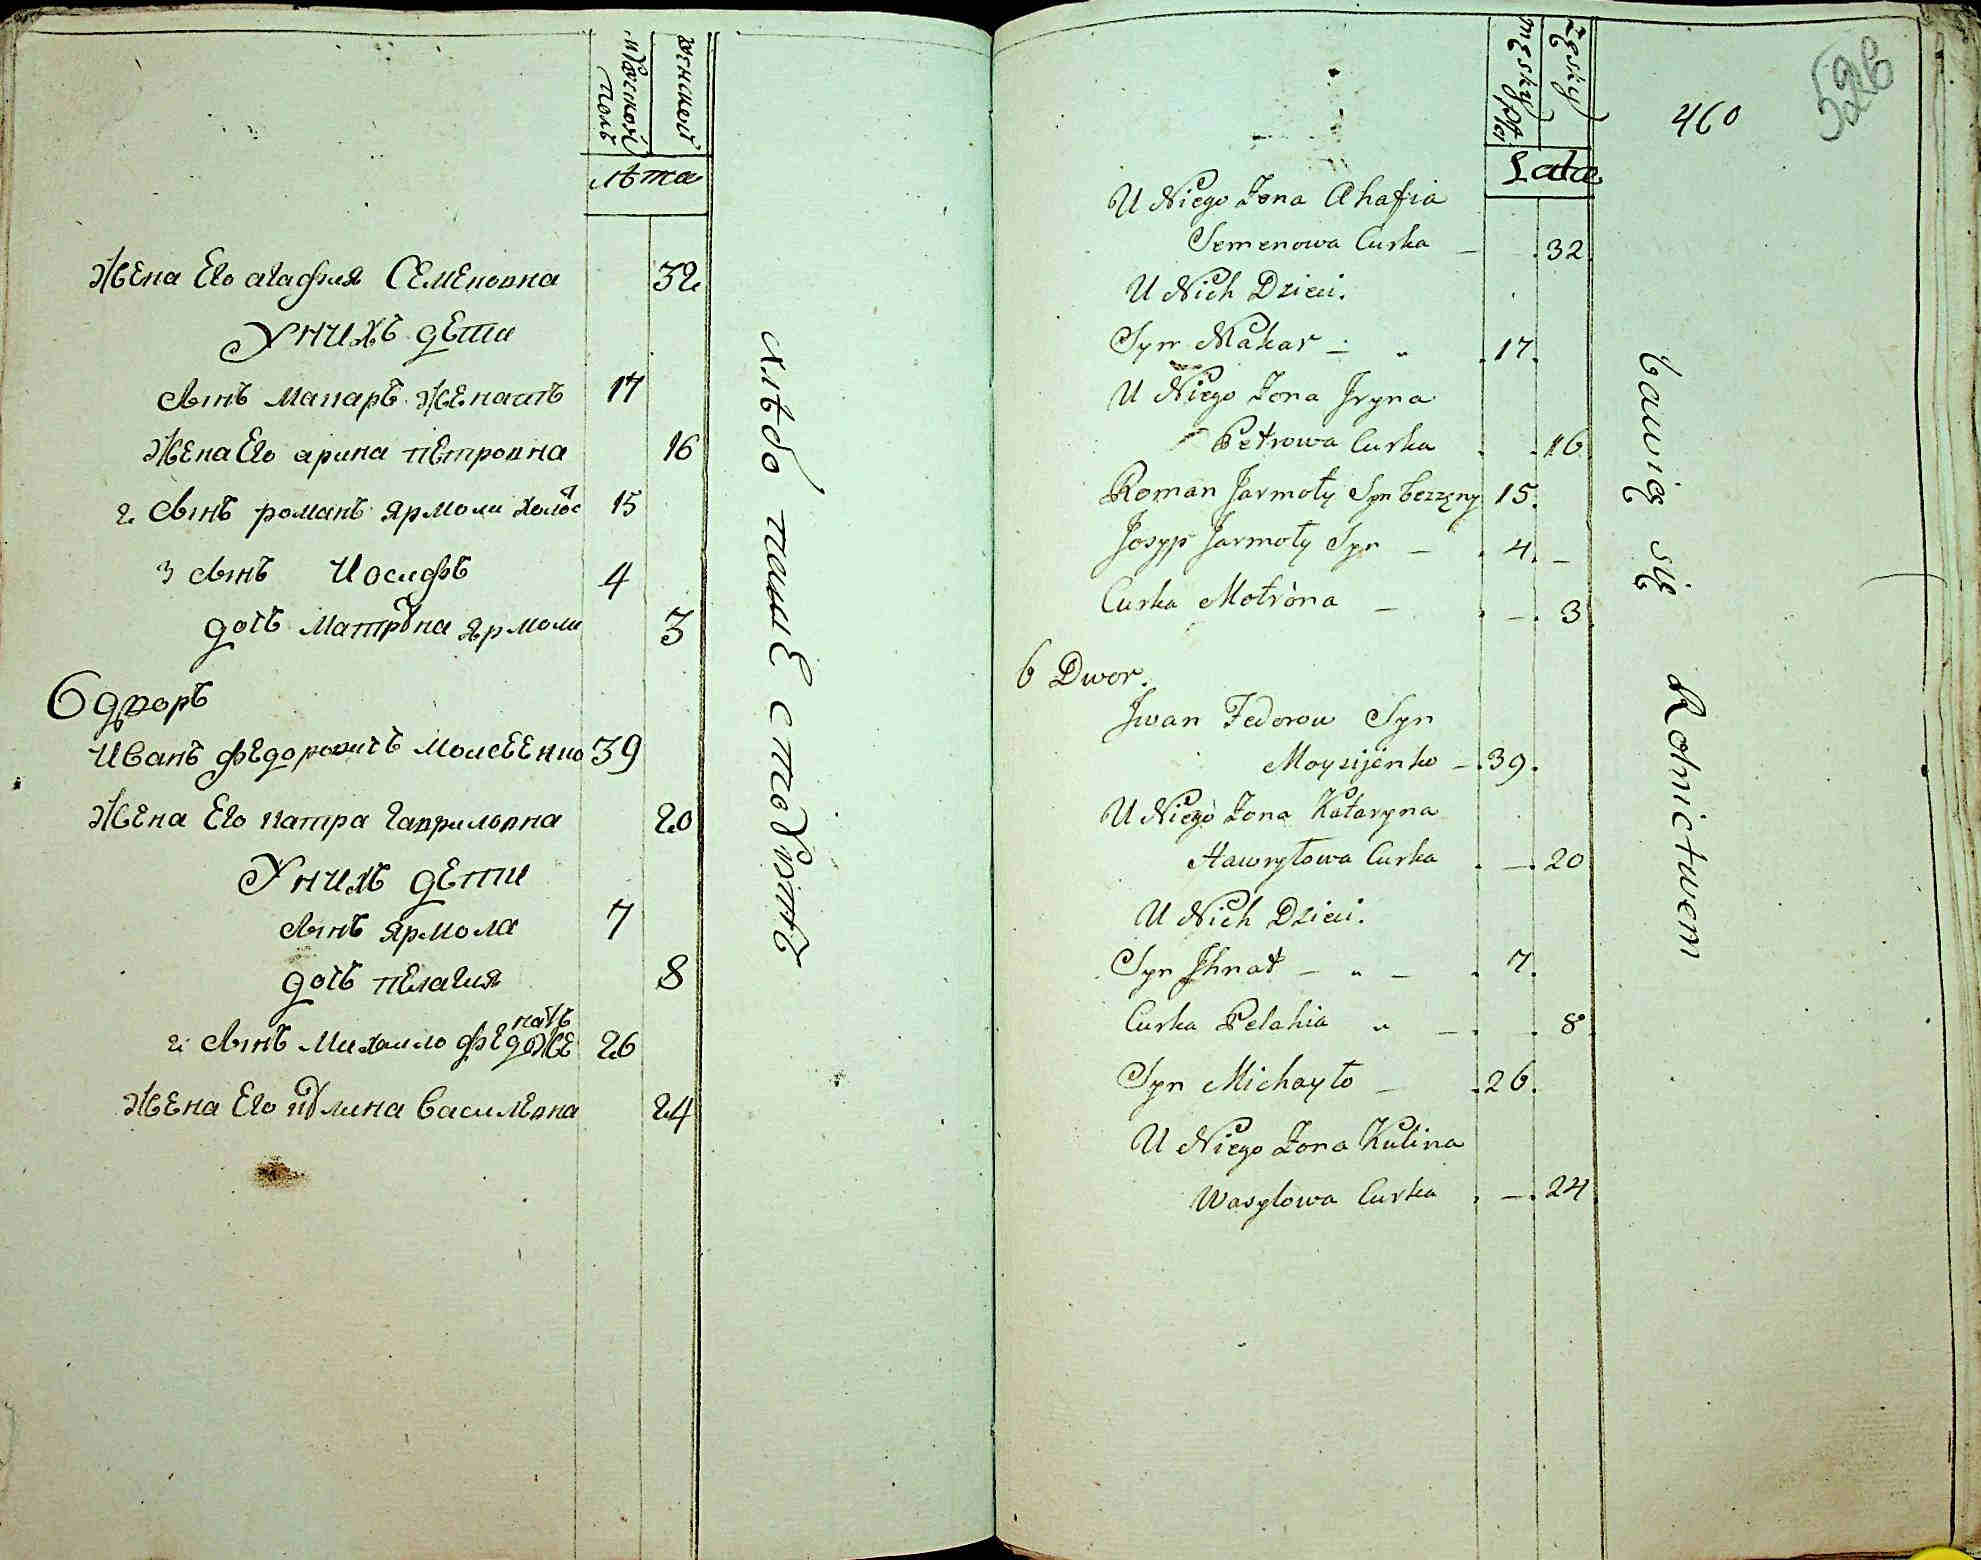 мужской полъ
женской
лѣта
Жена Его агафия Семеновна 32
У нихъ дети
Сынъ макаръ женатъ 17
Жена Его арина петровна 16
2 Сынъ романъ ярмоли холос 15
3 Сынъ Иосифъ 4
дочь матрона ярмоли 3
6 дворъ
Иванъ федоровичъ моисеенко 39
Жена Его катра гавриловна 20
У нихъ дети
Сынъ ярмола 7
дочь пелагия 8
2 Сынъ михаило федо жена[тъ] 26
Жена Его кулина василевна 24
хлѣбопашествуютъ
męsky płci
żęsky
Lata
460
526
U Niego Żona Ahafia
Semenowa Curka — 32
U Nich Dzieci.
Syn Makar — 17.
U Niego Żona Jryna
Petrowa Curka 16
Roman Jarmoły Syn bezzęny 15.
Josyp Jarmoły Syn — 4. —
Curka Motróna — — 3
6 Dwor.
Jwan Fedorow Syn
Moysijenko — 39.
U Niego Żona Kataryna
Hawryłowa Curka — 20
U Nich Dzieci.
Syn Jhnat — „ — 7.
Curka Pelahia „ — 8
Syn Michayło — 26.
U Niego Żona Kulina
Wasylowa Curka — 24
bawią się Rolnictwem